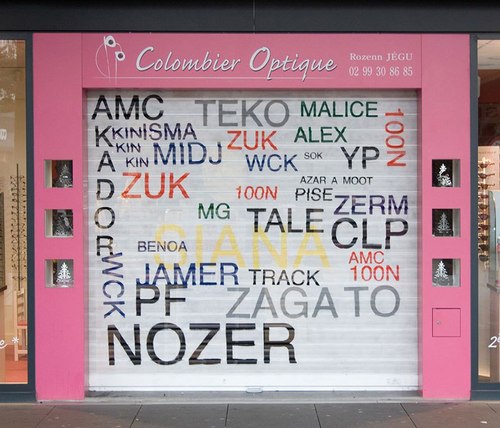 Colombier Optique
Rozenn JÉGU
02 99 30 86 85
AMC
TEKO
MALICE
100N
KINISMA
KIN
KIN
MIDJ
ZUK
ALEX
WCK
SOK
YP
AKADOR
ZUK
100N
AZAR A MOOT
PISE
ZERM
MG
TALE
CLP
BENOA
SIANA
AMC
100N
WCK
JAMER
TRACK
PF
ZAGATO
NOZER